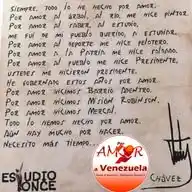 SIEMPRE, TODO LO HE HECHO POR AMOR.
POR AMOR AL ÁRBOL, AL RÍO, ME HICE PINTOR.
POR AMOR AL SABER, AL ESTUDIO,
ME FUI DE MI PUEBLO QUERIDO, A ESTUDIAR.
POR AMOR AL DEPORTE ME HICE PELOTERO.
POR AMOR A LA PATRIA ME HICE SOLDADO.
POR AMOR AL PUEBLO ME HICE PRESIDENTE,
USTEDES ME HICIERON PRESIDENTE.
HE GOBERNADO ESTOS AÑOS POR AMOR.
POR AMOR HICIMOS BARRIO ADENTRO.
POR AMOR HICIMOS MISIÓN ROBINSON.
POR AMOR HICIMOS MERCAL.
TODO LO HEMOS HECHO POR AMOR.
AÚN HAY MUCHO POR HACER.
NECESITO MÁS TIEMPO...
CHÁVEZ
ESTUDIO
ONCE
Por
AMOR
a Venezuela